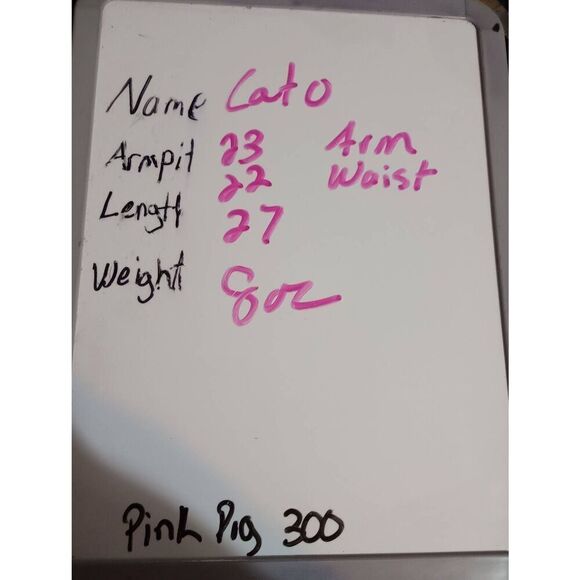 Name Cato
Armpit 23 Arm
22 Waist
Length 27
Weight 8oz
Pink Pig 300